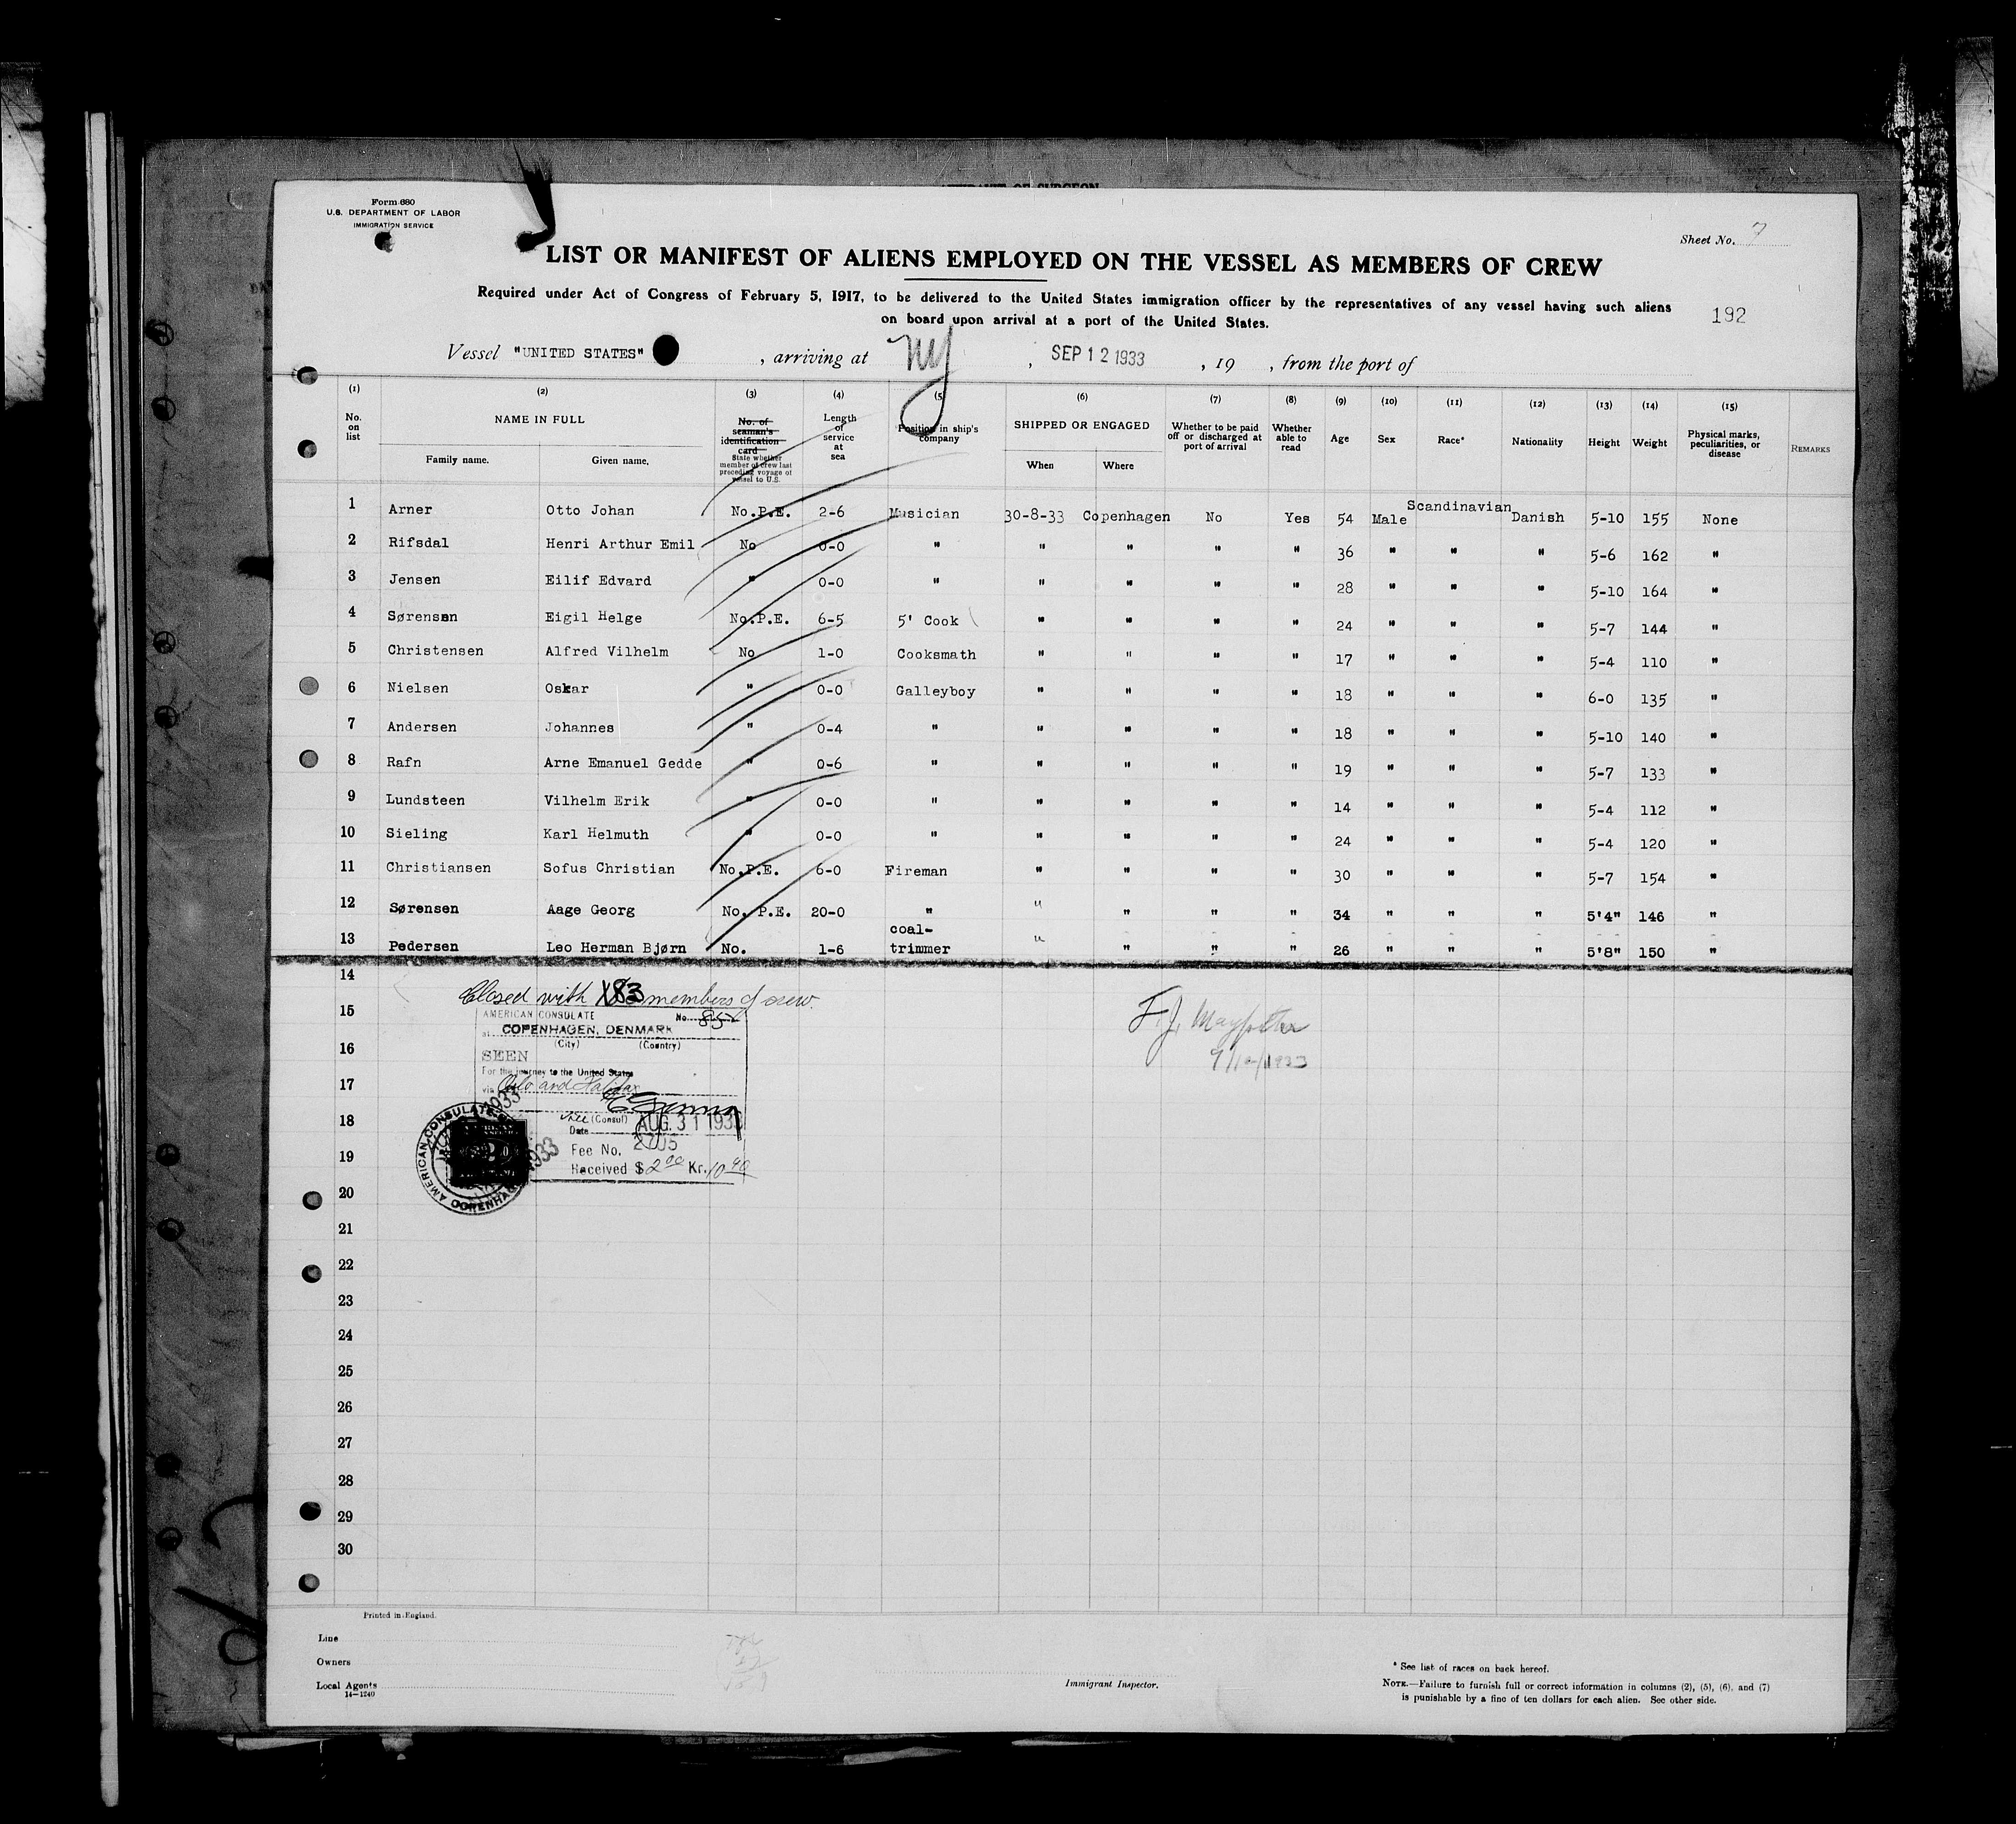 Form 680
U.S. DEPARTMENT OF LABOR
IMMIGRATION SERVICE
Sheet No. 7
LIST OR MANIFEST OF ALIENS EMPLOYED ON THE VESSEL AS MEMBERS OF CREW
Required under Act of Congress of February 5, 1917, to be delivered to the United States immigration officer by the representatives of any vessel having such aliens
on board upon arrival at a port of the United States.
192
Vessel "UNITED STATES" , arriving at NY , SEP 12 1933 , 19 , from the port of
(1) (2) (3) (4) (5) (6) (7) (8) (9) (10) (11) (12) (13) (14) (15)
No. on list
NAME IN FULL
Family name. Given name.
No. of seaman's identification card
State whether member of crew last preceding voyage of vessel to U.S.
Length of service at sea
Position in ship's company
SHIPPED OR ENGAGED
When Where
Whether to be paid off or discharged at port of arrival
Whether able to read
Age
Sex
Race*
Nationality
Height
Weight
Physical marks, peculiarities, or disease
REMARKS
1 Arner Otto Johan No.P.E. 2-6 Musician 30-8-33 Copenhagen No Yes 54 Male Scandinavian Danish 5-10 155 None
2 Rifsdal Henri Arthur Emil No 0-0 " " " " " 36 " " " 5-6 162 "
3 Jensen Eilif Edvard " 0-0 " " " " " 28 " " " 5-10 164 "
4 Sørensen Eigil Helge No.P.E. 6-5 5' Cook " " " " 24 " " " 5-7 144 "
5 Christensen Alfred Vilhelm No 1-0 Cooksmath " " " " 17 " " " 5-4 110 "
6 Nielsen Oskar " 0-0 Galleyboy " " " " 18 " " " 6-0 135 "
7 Andersen Johannes " 0-4 " " " " " 18 " " " 5-10 140 "
8 Rafn Arne Emanuel Gedde " 0-6 " " " " " 19 " " " 5-7 133 "
9 Lundsteen Vilhelm Erik " 0-0 " " " " " 14 " " " 5-4 112 "
10 Sieling Karl Helmuth " 0-0 " " " " " 24 " " " 5-4 120 "
11 Christiansen Sofus Christian No.P.E. 6-0 Fireman " " " " 30 " " " 5-7 154 "
12 Sørensen Aage Georg No. P.E. 20-0 " " " " " 34 " " " 5'4" 146 "
13 Pedersen Leo Herman Bjørn No. 1-6 coal-trimmer " " " " 26 " " " 5'8" 150 "
14
Closed with 183 members of crew.
15
AMERICAN CONSULATE No. 857
at COPENHAGEN, DENMARK
(City) (Country)
16
SEEN
For the journey to the United States
17
via Oslo and Halifax
18
Vice (Consul)
Date AUG 31 1933
Fee No. 2705
19
Received $ 2.00 Kr. 10.90
AMERICAN CONSULATE
COPENHAGEN
F.J.
9/12/1933
20
21
22
23
24
25
26
27
28
29
30
Printed in England.
Line
Owners
Local Agents
14—1240
Immigrant Inspector.
* See list of races on back hereof.
NOTE.—Failure to furnish full or correct information in columns (2), (5), (6), and (7)
is punishable by a fine of ten dollars for each alien. See other side.